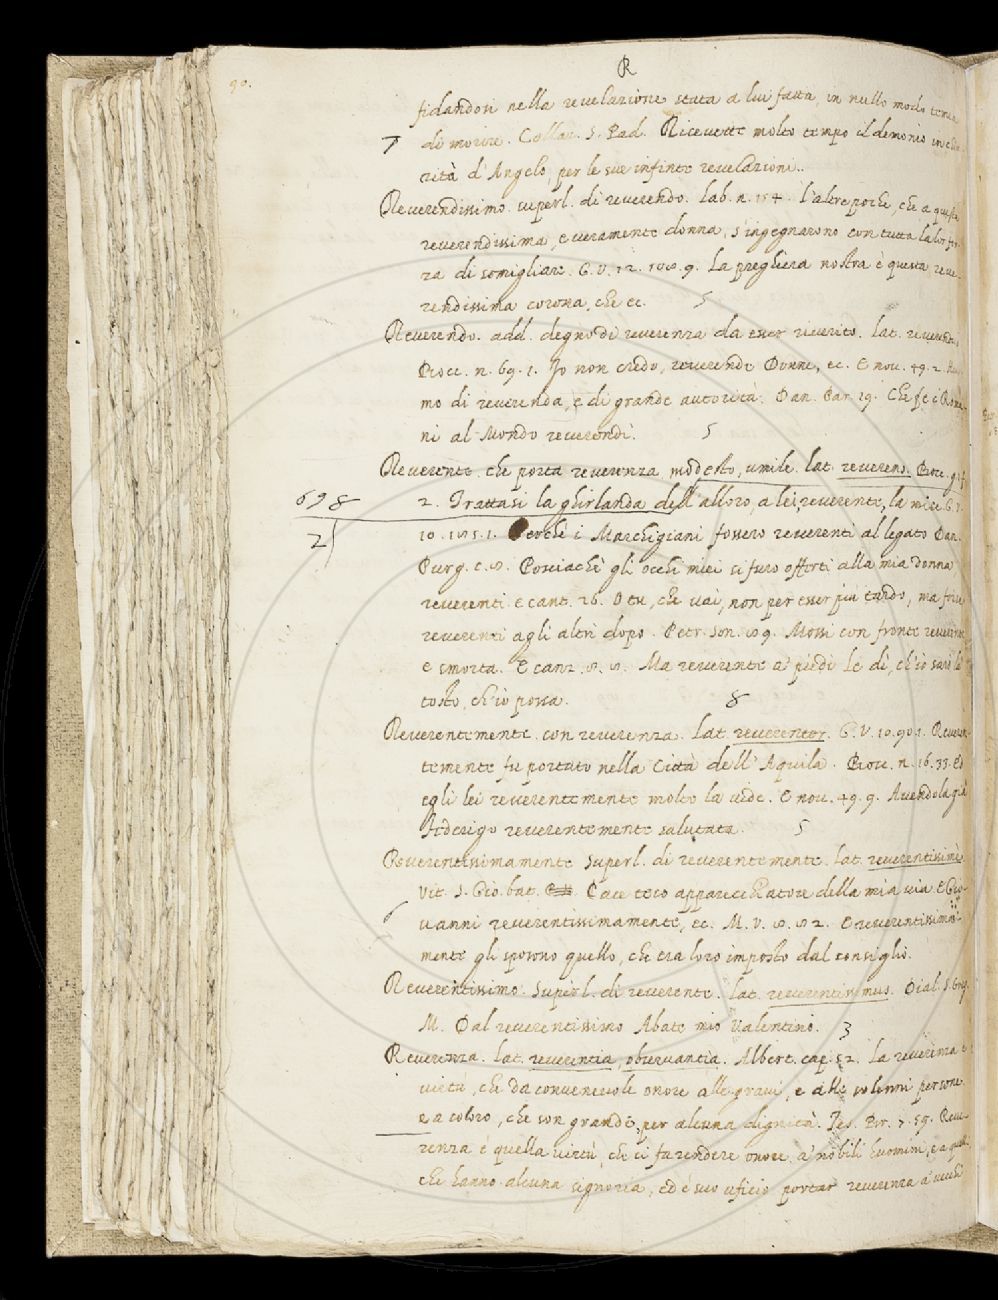 R
90.
fidandosi nella revelazione stata a lui fatta, in nullo modo temea
7 di morire. Collaz. S. Pad. Ricevette molto tempo il demonio in
rità d'Angelo, per le sue infinte revelazioni.
Reverendissimo. superl. di reverendo. Lab. n. 154. L'altre poche, che a questa
reverendissima, e veramente donna, s'ingegnarono con tutta la lor for-
za di somigliare. G.V. 12. 108. 9. La preghiera nostra è questa reve-
rendissima corona, che ec. 5
Reverendo. add. degno di reverenza da esser riverito. Lat. reverendus
Bocc. n. 69. 1. Io non credo, reverende Donne, ec. E nov. 49. 2. Huo-
mo di reverenda, e di grande autorità. Dan. Par. 19. Che fe i Roma-
ni al Mondo reverendi. 5
Reverente. che porta reverenza, modesto, umile. Lat. reverens. Bocc. g.
698 2. Trattasi la ghirlanda dell'alloro, a lei, reverente, la mise G.V.
2) 10. 185. 1. Perchè i Marchigiani fossero reverenti al legato Dan.
Purg. c. 8. Posciachè gli occhi miei si furo offerti alla mia donna
reverenti e cant. 26. O tu, che vai, non per esser più tardo, ma forse
reverenti agli altri dopo. Petr. Son. 89. Mossi con fronte reverente
e smorta. E canz. 8. 8. Ma reverente a' piedi le di, ch'io sarò là
tosto, ch'io possa. 8
Reverentemente. con reverenza. Lat. reverenter. G.V. 10. 90. 1. Reveren-
temente fu portato nella Città dell'Aquila. Bocc. n. 16. 33. Ed
egli lei reverentemente molto la vide. E nov. 49. 9. Avendola già
Federigo reverentemente salutata. 5
Reverentissimamente superl. di reverentemente. Lat. reverentissimè
Vit. S. Gio. bat. Ecce ecco apparecchiatore della mia via. E Gio-
6 vanni reverentissimamente, ec. M.V. 8. 82. E reverentissima-
mente gli sposono quello, che era loro imposto dal consiglio.
Reverentissimo. Superl. di reverente. Lat. reverentissimus. Dial. S. Greg.
M. Dal reverentissimo Abate mio Valentino. 3
Reverenza. Lat. reverentia, observantia. Albert. cap. 52. La reverenza è
virtù, che da convenevole onore alle gravi, e alle solenni persone
e a coloro, che son grandi per alcuna dignità. Tes. Br. 7. 59. Reve-
renza è quella virtù, che ci fa rendere onore a' nobili huomini, e a quelli
che hanno alcuna signoria, ed è suo uficio portar reverenza a' vecchi